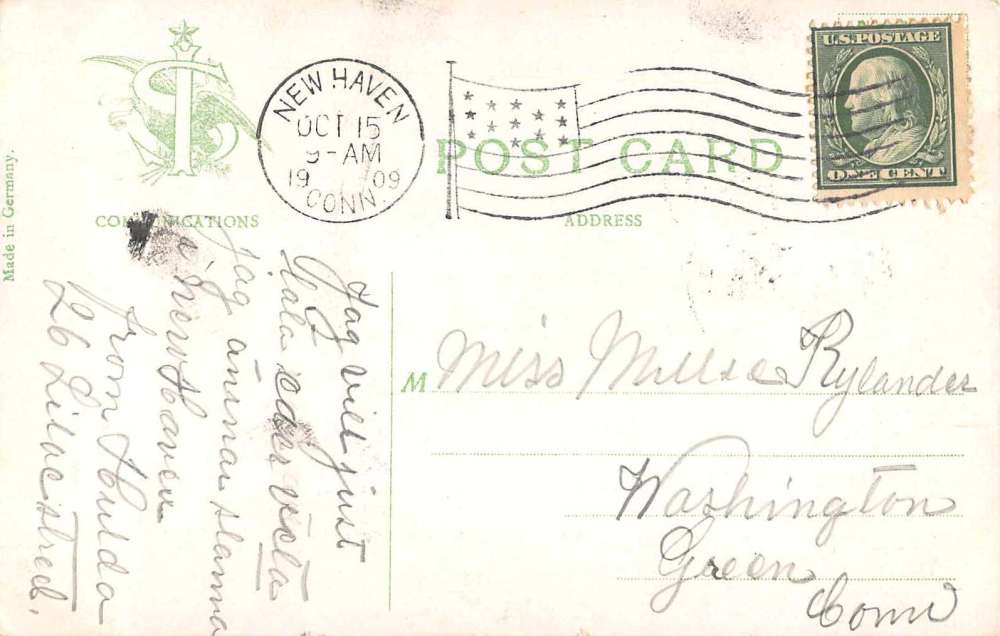 Made in Germany.
NEW HAVEN
OCT 15
9-AM
1909
CONN.
U.S. POSTAGE
ONE CENT
POST CARD
COMMUNICATIONS
ADDRESS
Jag vill just
tala eder veta
Jag ännar stanna
i New Haven
from Hulda
26 Lilac street.
M Miss Millie Rylander
Washington
Green
Conn